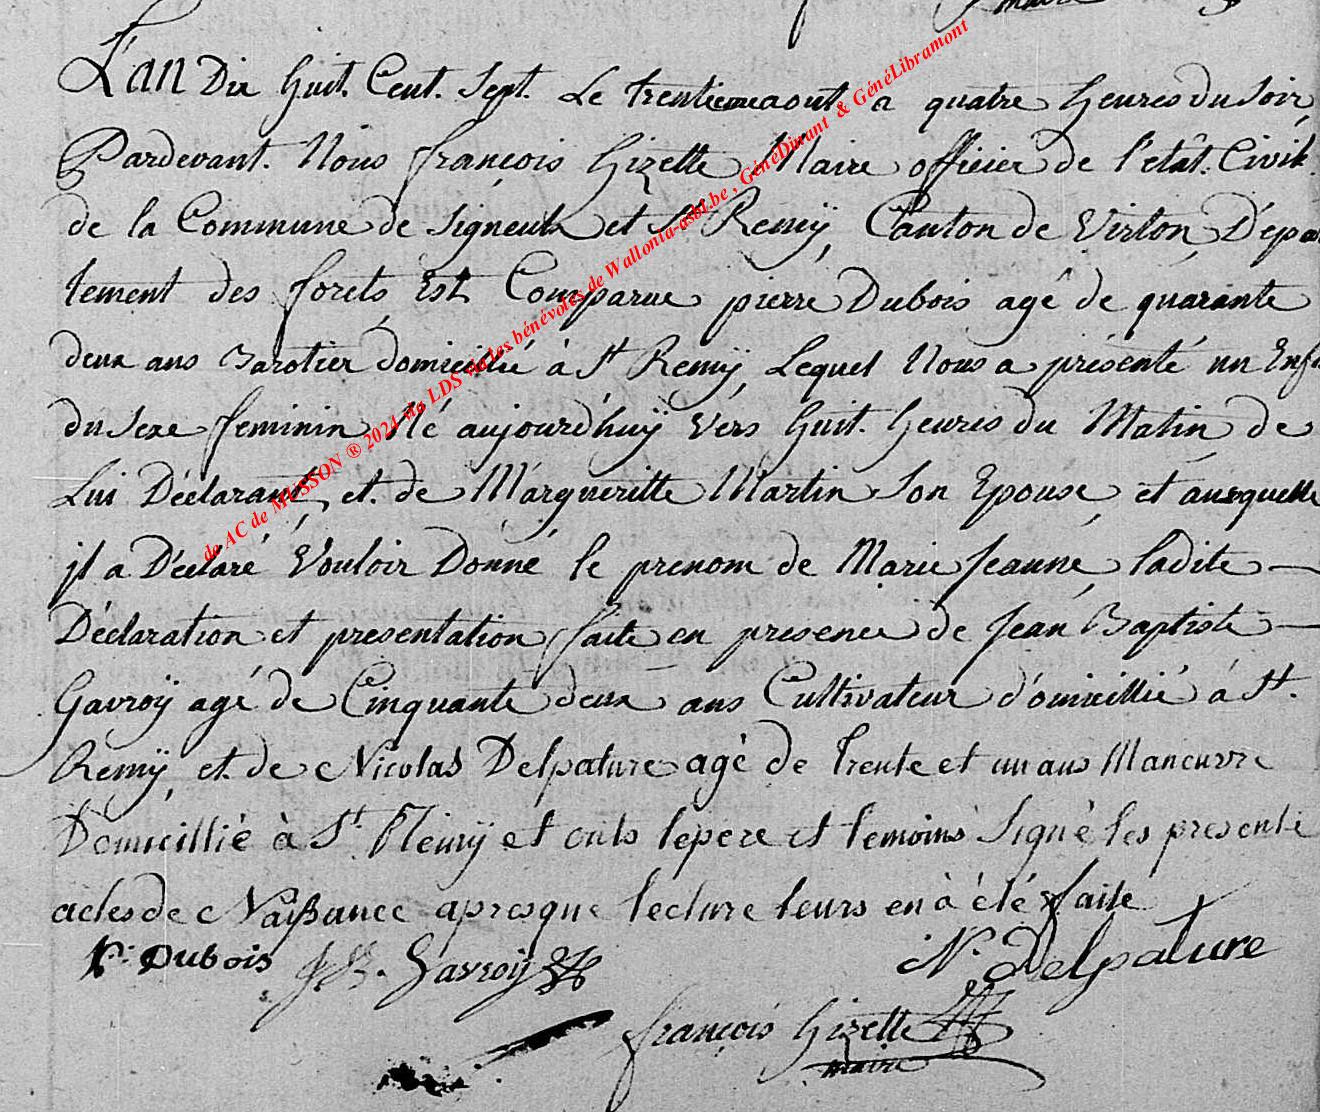 maire
L'an Dix Huit. Cent. Sept. Le trentieme aout a quatre heures du Soir
Pardevant. Nous françois Gizette Maire officier de l'etât. Civil.
de la Commune de Signeulx et St Remÿ, Canton de Virton Dépar
tement des forets Est Comparue pierre Dubois agê de quarante
deux ans domicillié à St Remÿ, Lequel Nous a présenté un Enfa
du Sexe feminin Né aujourd'huÿ vers Huit. Heures du Matin de
Lui Déclarant, et. de Margueritte Martin Son Epouse, et auxquelle
jl a Déclaré Vouloir Donné le prenom de Marie Jeanne, ladite
Déclaration et presentation faite en presence de Jean Baptiste
Gavroÿ agé de Cinquante deux ans Cultivateur domicillié à St.
Remÿ, et. de Nicolas Delpature agé de trente et un ans Maneuvre
Domicillié à St. Rémÿ et onts le pere et temoins Signé les presente
actes de Naissance apres que lecture leurs en à été faite
P. Dubois JB. Gavroÿ N. Delpature
françois Gizette
maire
de AC de MUSSON ® 2024 via LDS via les bénévoles de Wallonia-asbl.be , GénéDinant & GénéLibramont